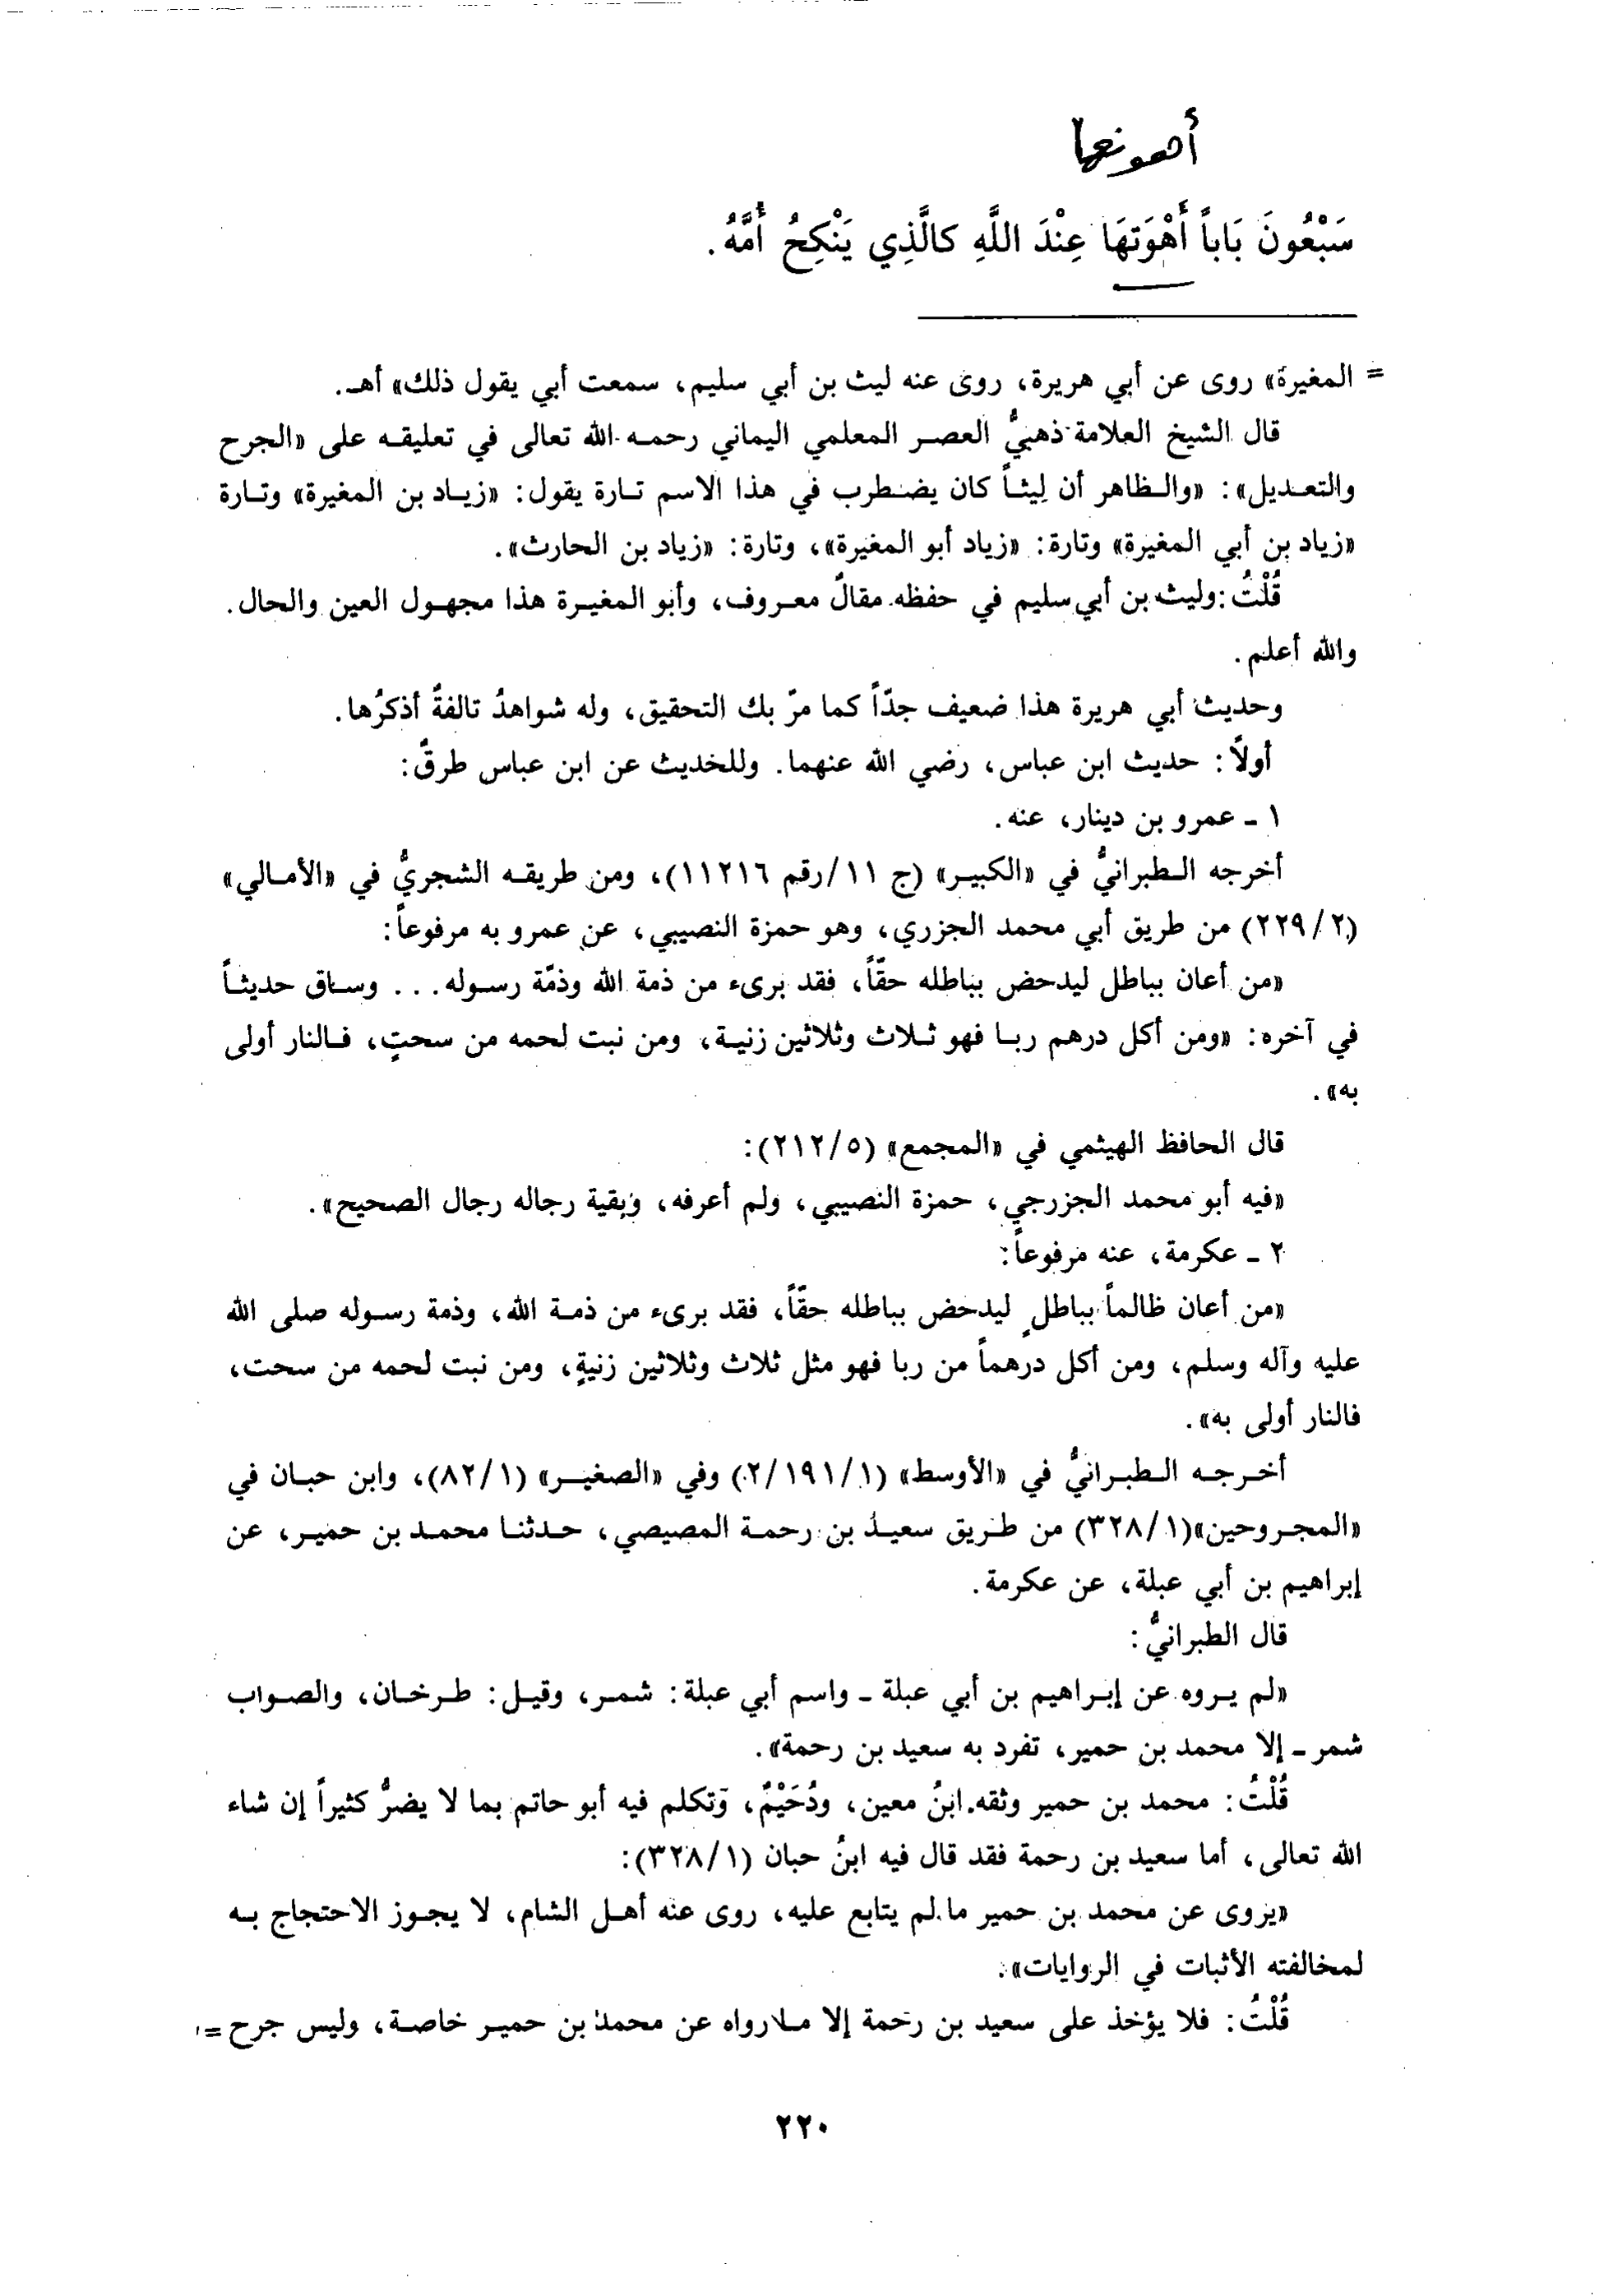 أهونها
سَبْعُونَ بَاباً أَهْوَتهَا عِنْدَ اللَّهِ كالَّذِي يَنْكِحُ أُمَّهُ.
= المغيرة» روى عن أبي هريرة، روى عنه ليث بن أبي سليم، سمعت أبي يقول ذلك» أهـ.
قال الشيخ العلامة ذهبيُّ العصر المعلمي اليماني رحمه الله تعالى في تعليقه على «الجرح
والتعديل»: «والظاهر أن لِيثاً كان يضطرب في هذا الاسم تارة يقول: «زياد بن المغيرة» وتارة
«زياد بن أبي المغيرة» وتارة: «زياد أبو المغيرة»، وتارة: «زياد بن الحارث».
قُلْتُ: وليث بن أبي سليم في حفظه مقالٌ معروف، وأبو المغيرة هذا مجهول العين والحال.
والله أعلم.
وحديث أبي هريرة هذا ضعيف جدّاً كما مرّ بك التحقيق، وله شواهدُ تالفةٌ أذكرُها.
أولاً: حديث ابن عباس، رضي الله عنهما. وللحديث عن ابن عباس طرقٌ:
١ ـ عمرو بن دينار، عنه.
أخرجه الطبرانيُّ في «الكبير» (ج ١١/رقم ١١٢١٦)، ومن طريقه الشجريُّ في «الأمالي»
(٢/٢٢٩) من طريق أبي محمد الجزري، وهو حمزة النصيبي، عن عمرو به مرفوعاً:
«من أعان بباطل ليدحض بباطله حقّاً، فقد برىء من ذمة الله وذمّة رسوله... وساق حديثاً
في آخره: «ومن أكل درهم ربا فهو ثلاث وثلاثين زنية، ومن نبت لحمه من سحتٍ، فالنار أولى
به».
قال الحافظ الهيثمي في «المجمع» (٥/٢١٢):
«فيه أبو محمد الجزرجي، حمزة النصيبي، ولم أعرفه، وبقية رجاله رجال الصحيح».
٢ ـ عكرمة، عنه مرفوعاً:
«من أعان ظالماً بباطلٍ ليدحض بباطله حقّاً، فقد برىء من ذمة الله، وذمة رسوله صلى الله
عليه وآله وسلم، ومن أكل درهماً من ربا فهو مثل ثلاث وثلاثين زنيةٍ، ومن نبت لحمه من سحت،
فالنار أولى به».
أخرجه الطبرانيُّ في «الأوسط» (١/١٩١/٢) وفي «الصغير» (١/٨٢)، وابن حبان في
«المجروحين»(١/٣٢٨) من طريق سعيد بن رحمة المصيصي، حدثنا محمد بن حمير، عن
إبراهيم بن أبي عبلة، عن عكرمة.
قال الطبرانيُّ:
«لم يروه عن إبراهيم بن أبي عبلة ـ واسم أبي عبلة: شمر، وقيل: طرخان، والصواب
شمر ـ إلا محمد بن حمير، تفرد به سعيد بن رحمة».
قُلْتُ: محمد بن حمير وثقه ابنُ معين، ودُحَيْمٌ، وتكلم فيه أبو حاتم بما لا يضرُّ كثيراً إن شاء
الله تعالى، أما سعيد بن رحمة فقد قال فيه ابنُ حبان (١/٣٢٨):
«يروى عن محمد بن حمير ما لم يتابع عليه، روى عنه أهل الشام، لا يجوز الاحتجاج به
لمخالفته الأثبات في الروايات».
قُلْتُ: فلا يؤخذ على سعيد بن رحمة إلا ما رواه عن محمد بن حمير خاصة، وليس جرح =
٢٢٠